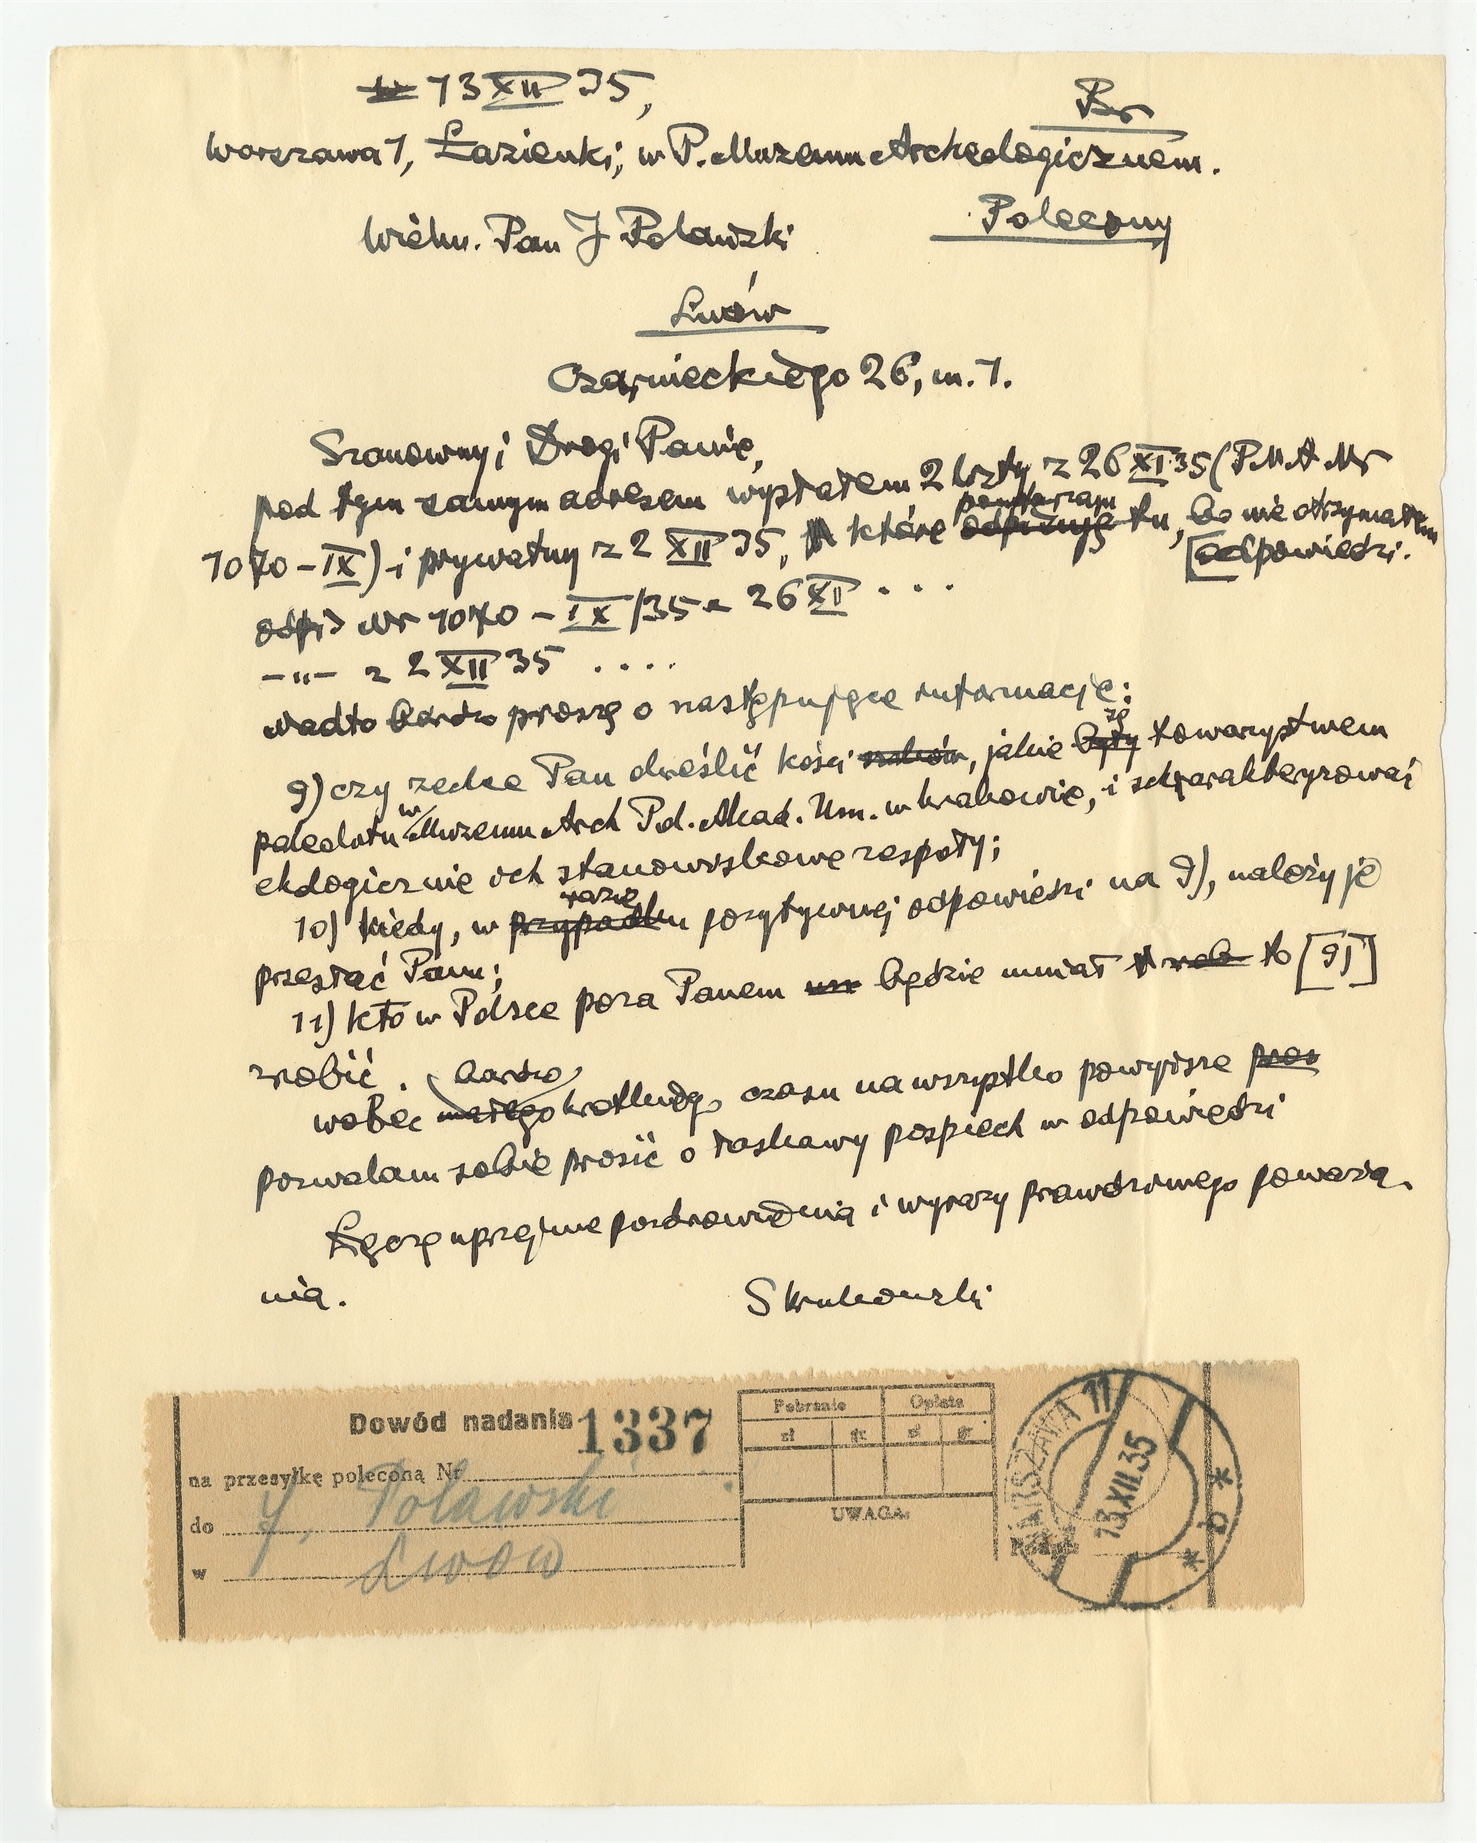 13 XII 35,
Br
Warszawa 1, Łazienki; w P. Muzeum Archeologicznem.
Polecony
Wielm. Pan J Polawski
Lwów
Czarnieckiego 26, m. 1.
Szanowny i Drogi Panie,
pod tym samym adresem wysłałem 2 listy, z 26 XI 35 (P.M.A. Nr
1070 – IX) i prywatny z 2 XII 35, które powtarzam tu, bo nie otrzymałem
[odpowiedzi.
odpis Nr 1070 – IX/35 z 26 XI . . .
– „ – z 2 XII 35 . . . .
Nadto bardzo proszę o następujące informacje:
9) czy zechce Pan określić kości, jakie są towarzystwem
paleolitu w Muzeum Arch Pol. Akad. Um. w Krakowie, i scharakteryzować
ekologicznie ich stanowiskowe zespoły;
10) kiedy, w razie pozytywnej odpowiedzi na 9), należy je
przesłać Panu;
11) kto w Polsce poza Panem będzie umiał to [9)]
zrobić.
Wobec bardzo krótkiego czasu na wszystko powyższe
pozwalam sobie prosić o łaskawy pospiech w odpowiedzi
Łączę uprzejme pozdrowienia i wyrazy prawdziwego poważa-
nia.
S Krukowski
Dowód nadania 1337
na przesyłkę poleconą Nr
do J. Polawski
w Lwów
Pobranie Opłata
zł gr zł gr
UWAGA:
WARSZAWA 11
13.XII.35
* b *